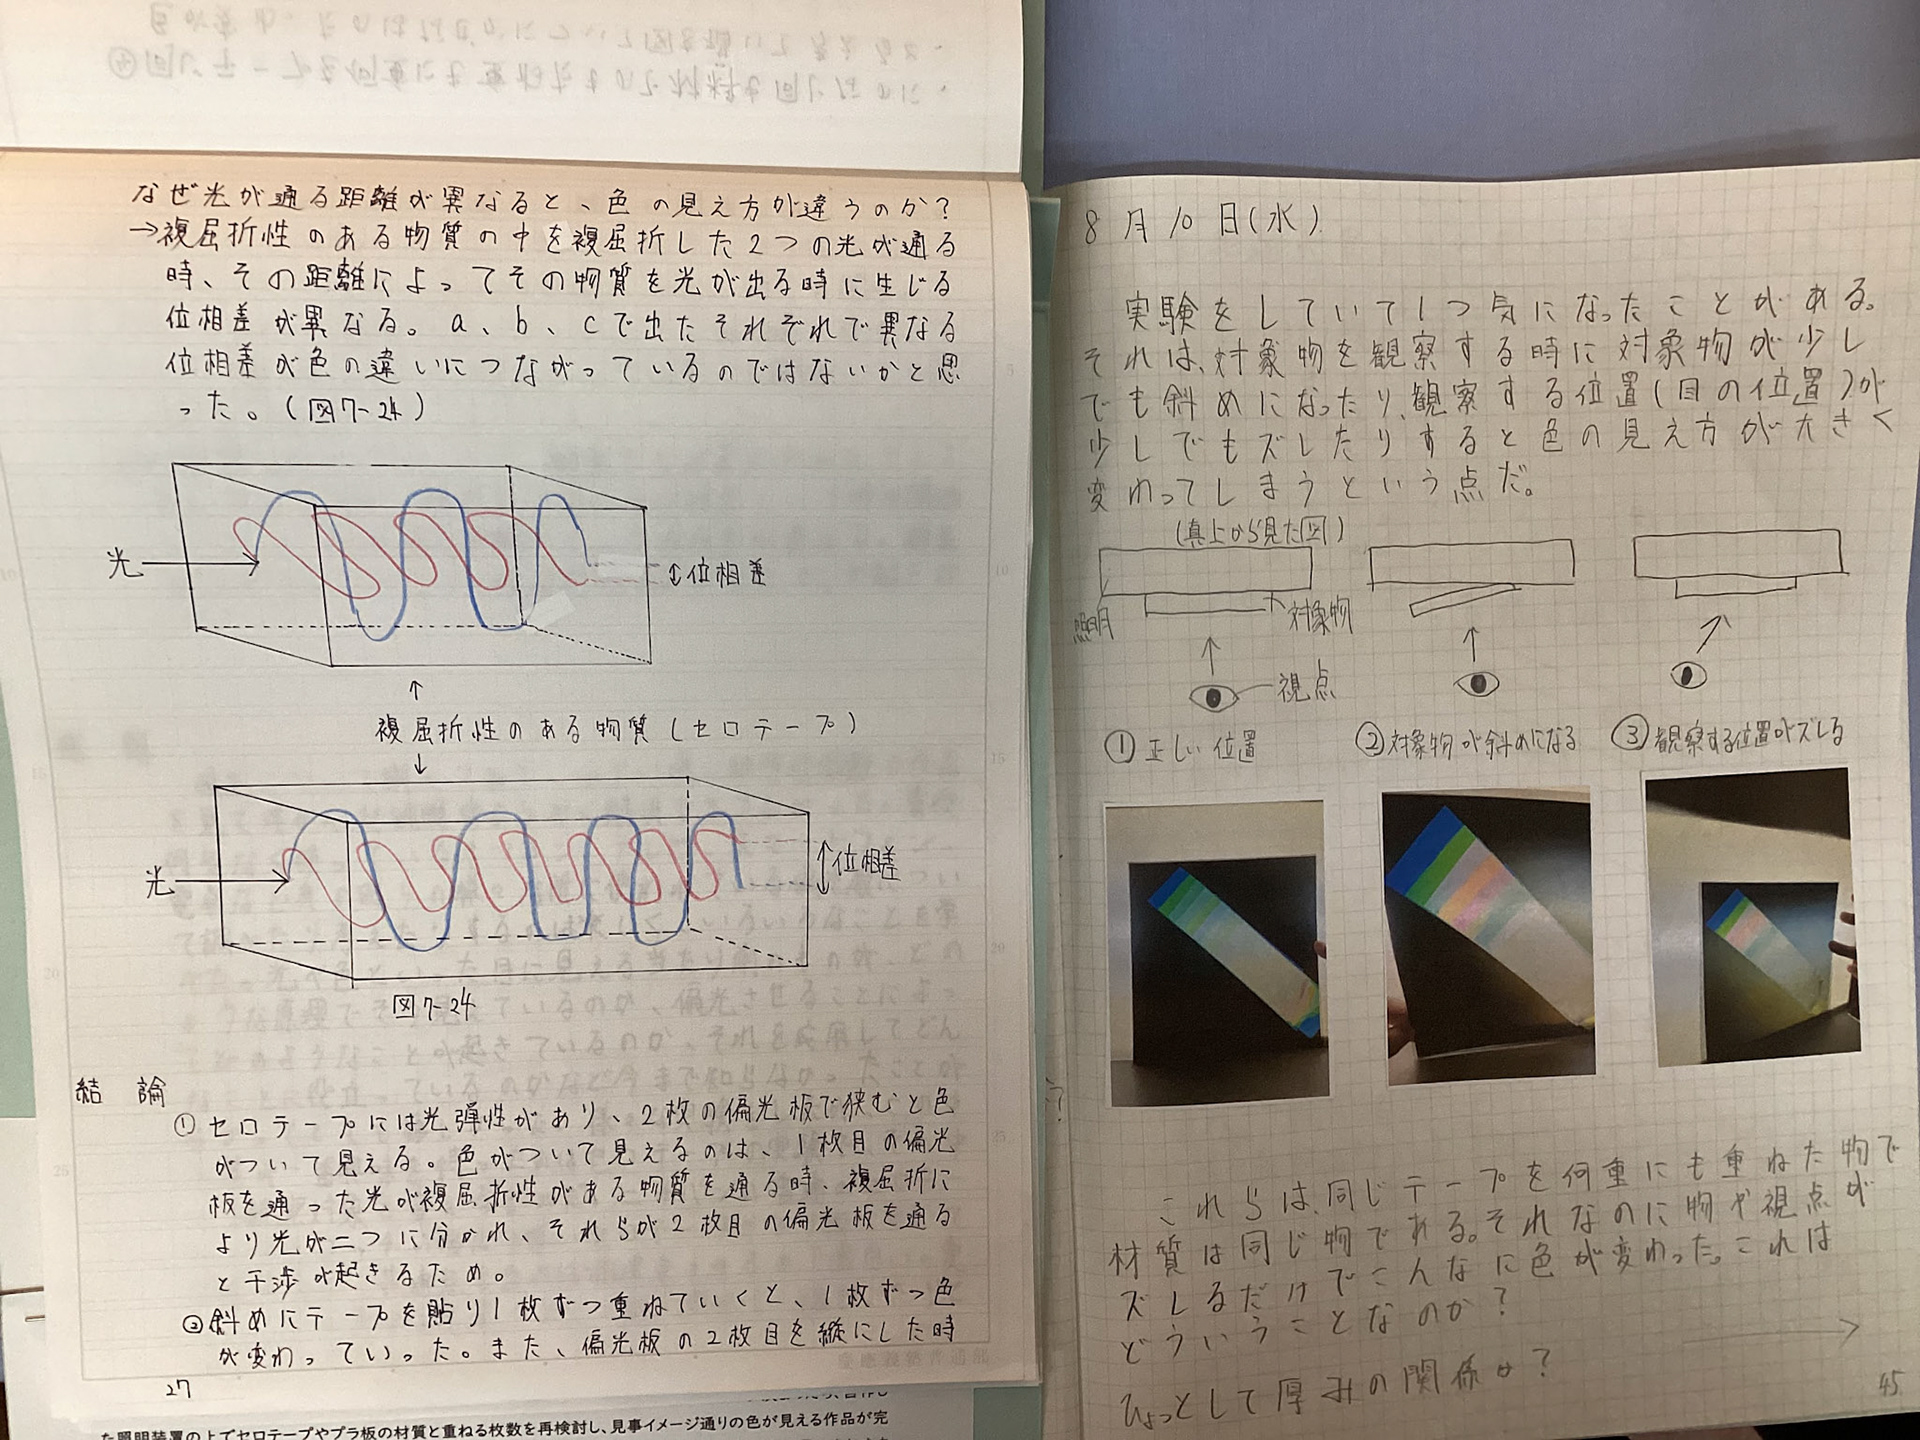 なぜ光が通る距離が異なると、色の見え方が違うのか?
→複屈折性のある物質の中を複屈折した2つの光が通る
時、その距離によってその物質を光が出る時に生じる
位相差が異なる。a、b、cで出たそれぞれで異なる
位相差が色の違いにつながっているのではないかと思
った。(図7-24)
光
位相差
複屈折性のある物質(セロテープ)
光
位相差
図7-24
結論
①セロテープには光弾性があり、2枚の偏光板で狭むと色
がついて見える。色がついて見えるのは、1枚目の偏光
板を通った光が複屈折性がある物質を通る時、複屈折に
より光が二つに分かれ、それらが2枚目の偏光板を通る
と干渉が起きるため。
②斜めにテープを貼り1枚ずつ重ねていくと、1枚ずつ色
が変わっていった。また、偏光板の2枚目を縦にした時
27
た照明装置の上でセロテープやプラ板の材質と重ねる枚数を再検討し、見事イメージ通りの色が見える作品が完
8月10日(水)
実験をしていて1つ気になったことがある。
それは、対象物を観察する時に対象物が少し
でも斜めになったり、観察する位置(目の位置)が
少しでもズレたりすると色の見え方が大きく
変わってしまうという点だ。
(真上から見た図)
照明
対象物
視点
①正しい位置
②対象物が斜めになる
③観察する位置がズレる
これらは、同じテープを何重にも重ねた物で
材質は同じ物である。それなのに物や視点が
ズレるだけでこんなに色が変わった。これは
どういうことなのか?
ひょっとして厚みの関係は?
45